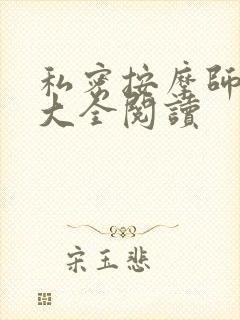 私密按摩師
大全閱讀
宋玉悲